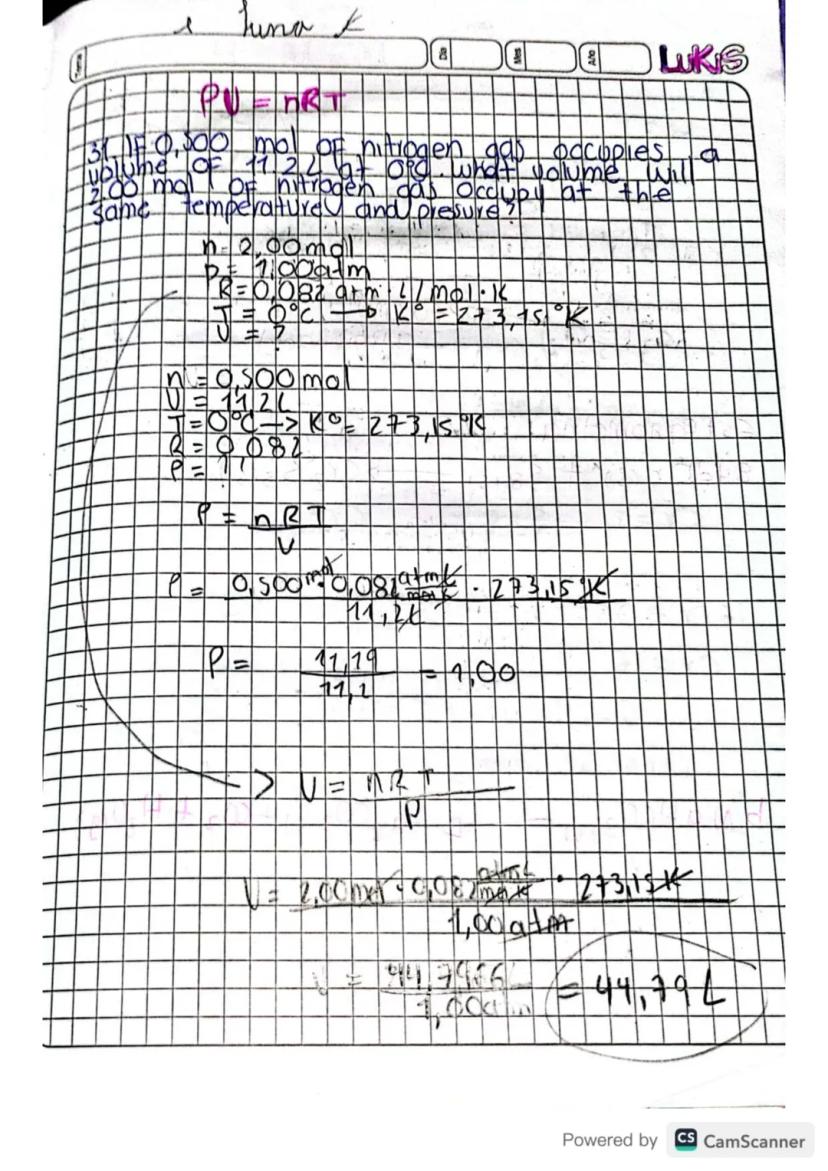 Luna
Tema
Día
Mes
Año
LUKIS
PV = nRT
31. IF 0,500 mol OF nitrogen gas occupies a
volume OF 11.2 L at 0°C. what volume will
2.00 mol OF nitrogen gas occupy at the
same temperature and presure?
n = 2,00 mol
p = 1.00 atm
R = 0,082 atm · L / mol · K
T = 0°C → K° = 273,15 °K
V = ?
n = 0,500 mol
V = 11,2 L
T = 0°C → K° = 273,15 °K
R = 0,082
P = ?
P = nRT
V
P = 0,500 mol · 0,082 atm L · 273,15 °K
mol K
11,2 L
P = 11,19 = 1,00
11,2
> V = nRT
P
V = 2,00 mol · 0,082 atm L · 273,15 K
mol K
1,00 atm
= 44,79 L
1,00 atm
Powered by CS CamScanner